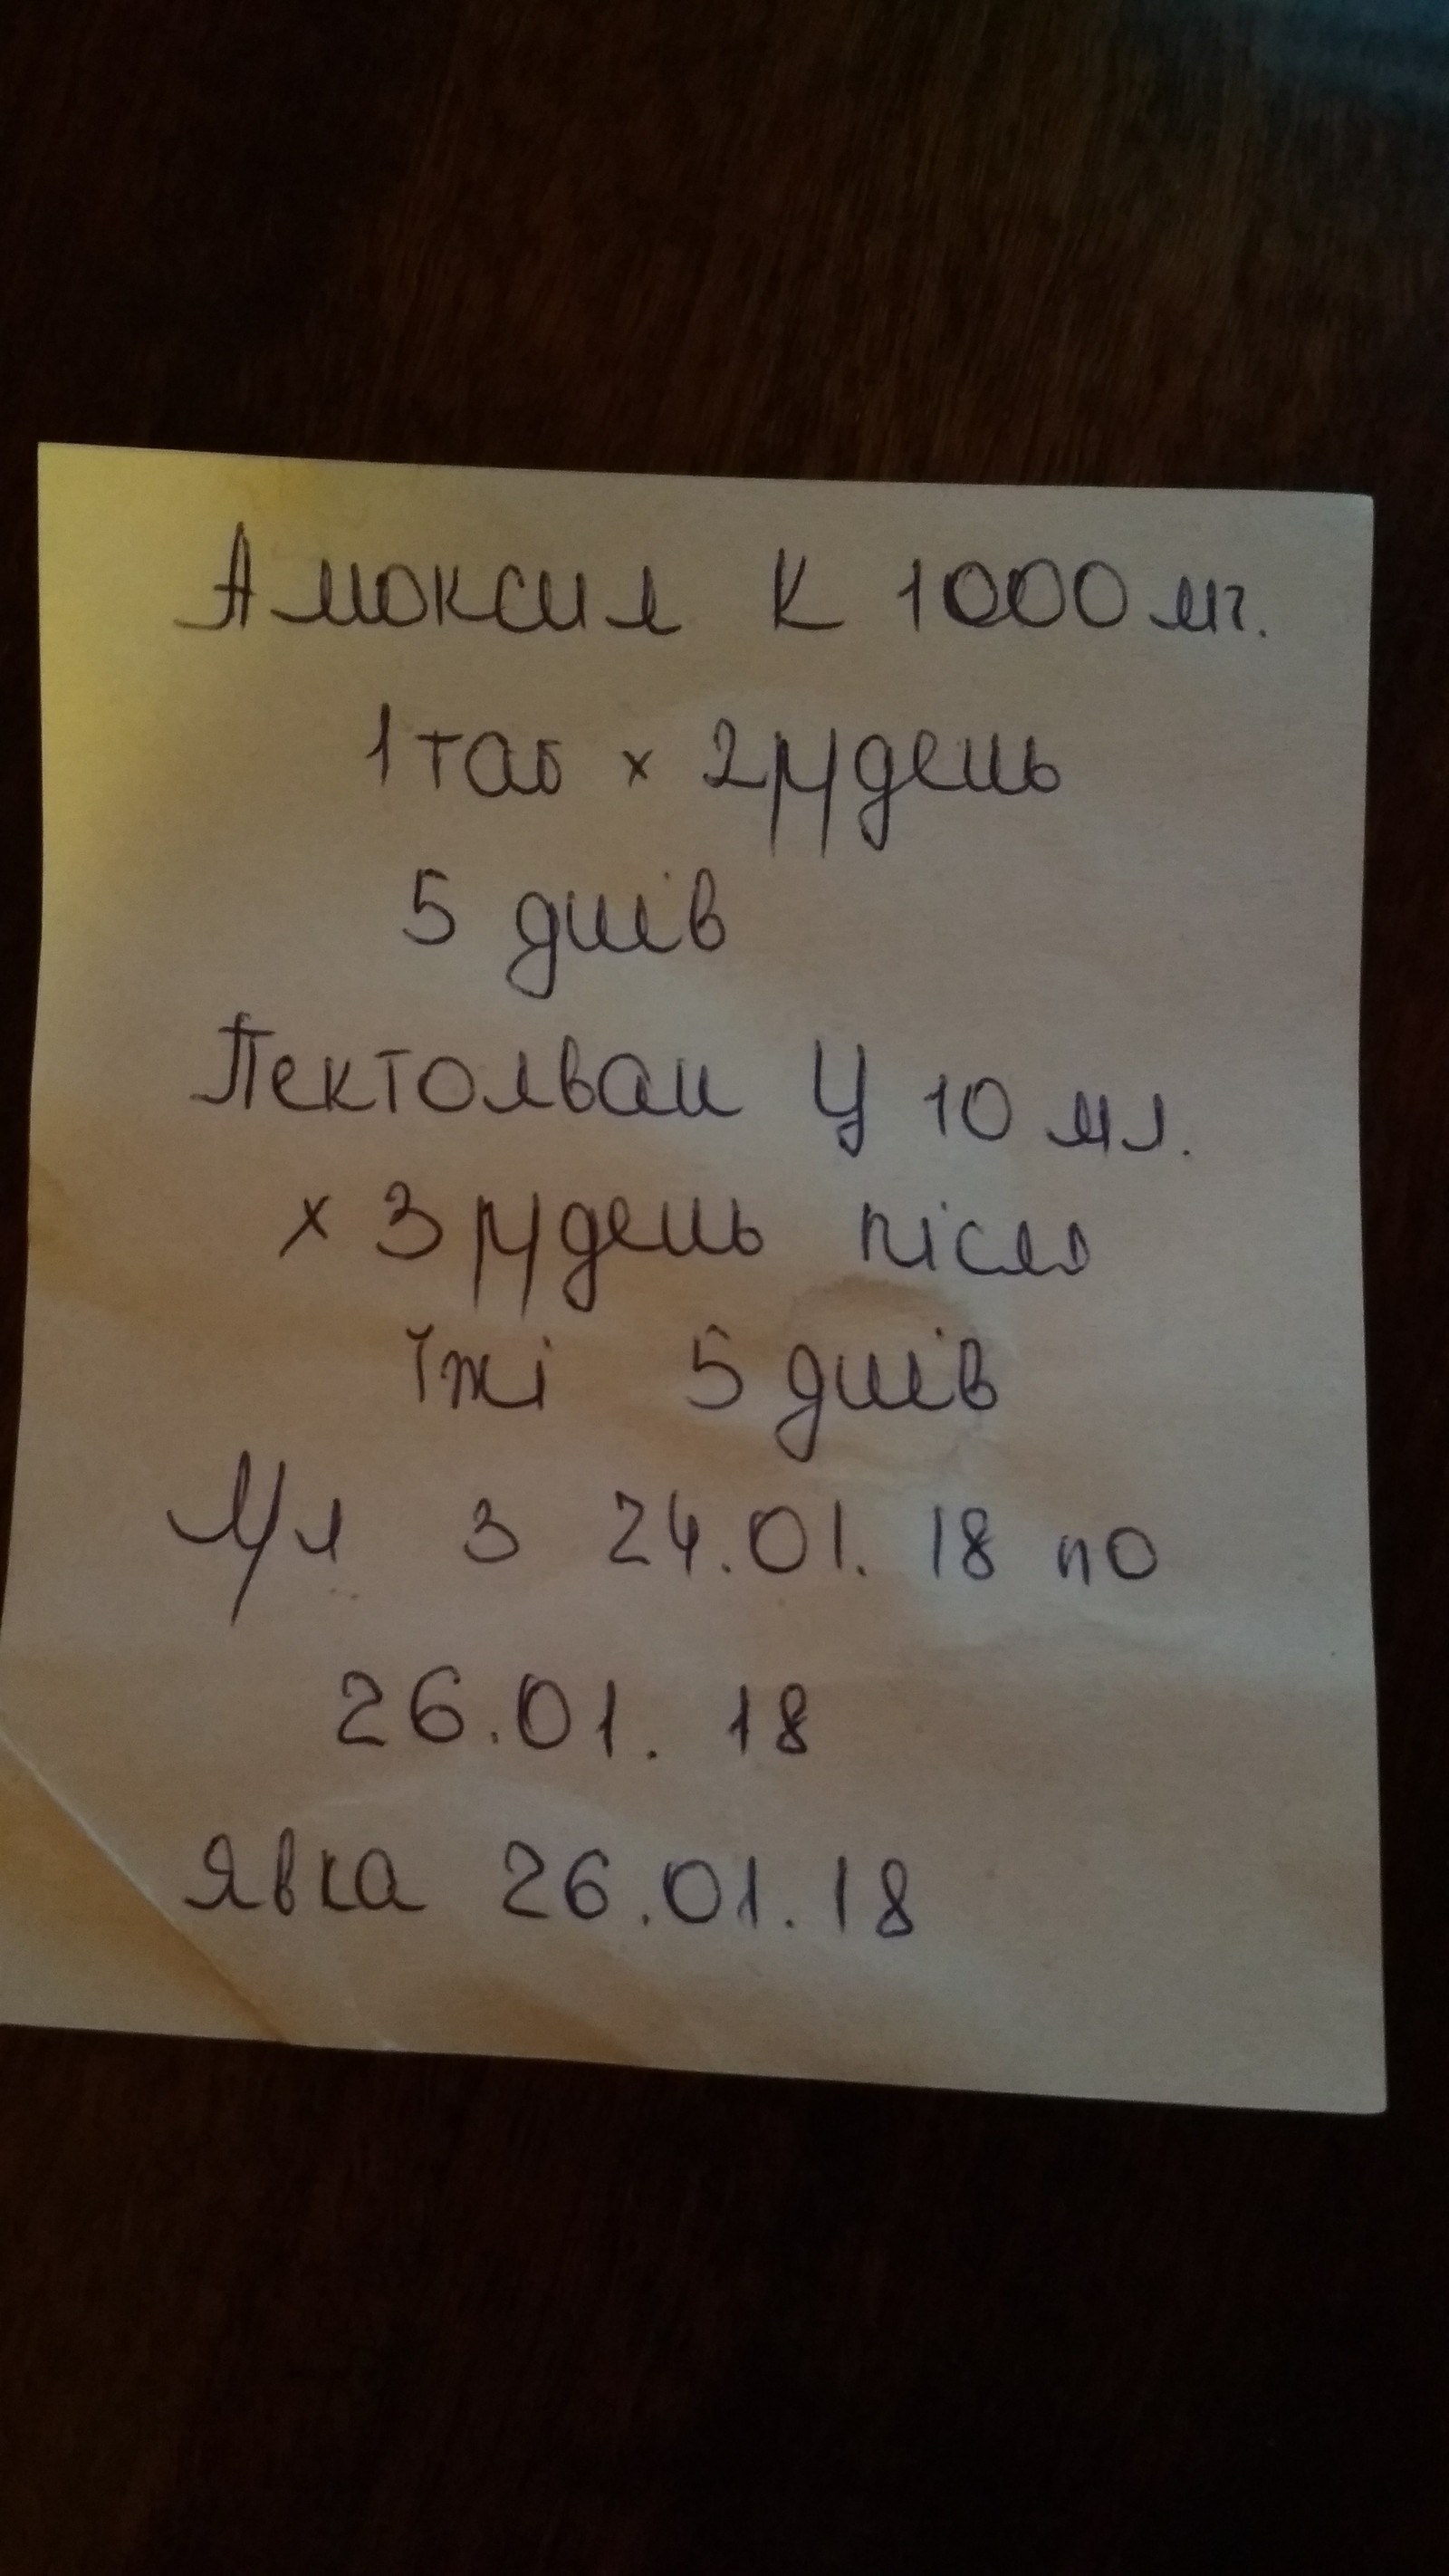 Амоксил К 1000 мг.
1 таб × 2 р/день
5 днів
Пектолван Ц 10 мл.
× 3 р/день після
їжі 5 днів
л/л з 24.01.18 по
26.01.18
явка 26.01.18